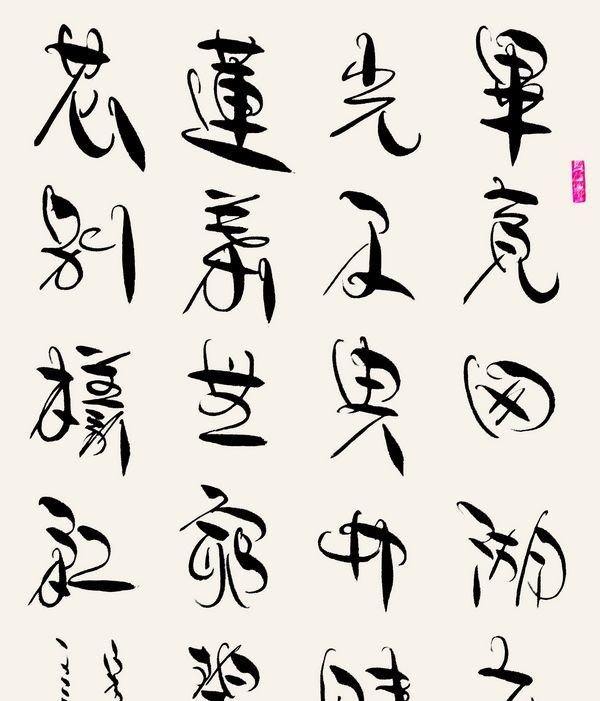 畢竟西湖六
光不與四時
蓮葉無窮碧
花別樣紅